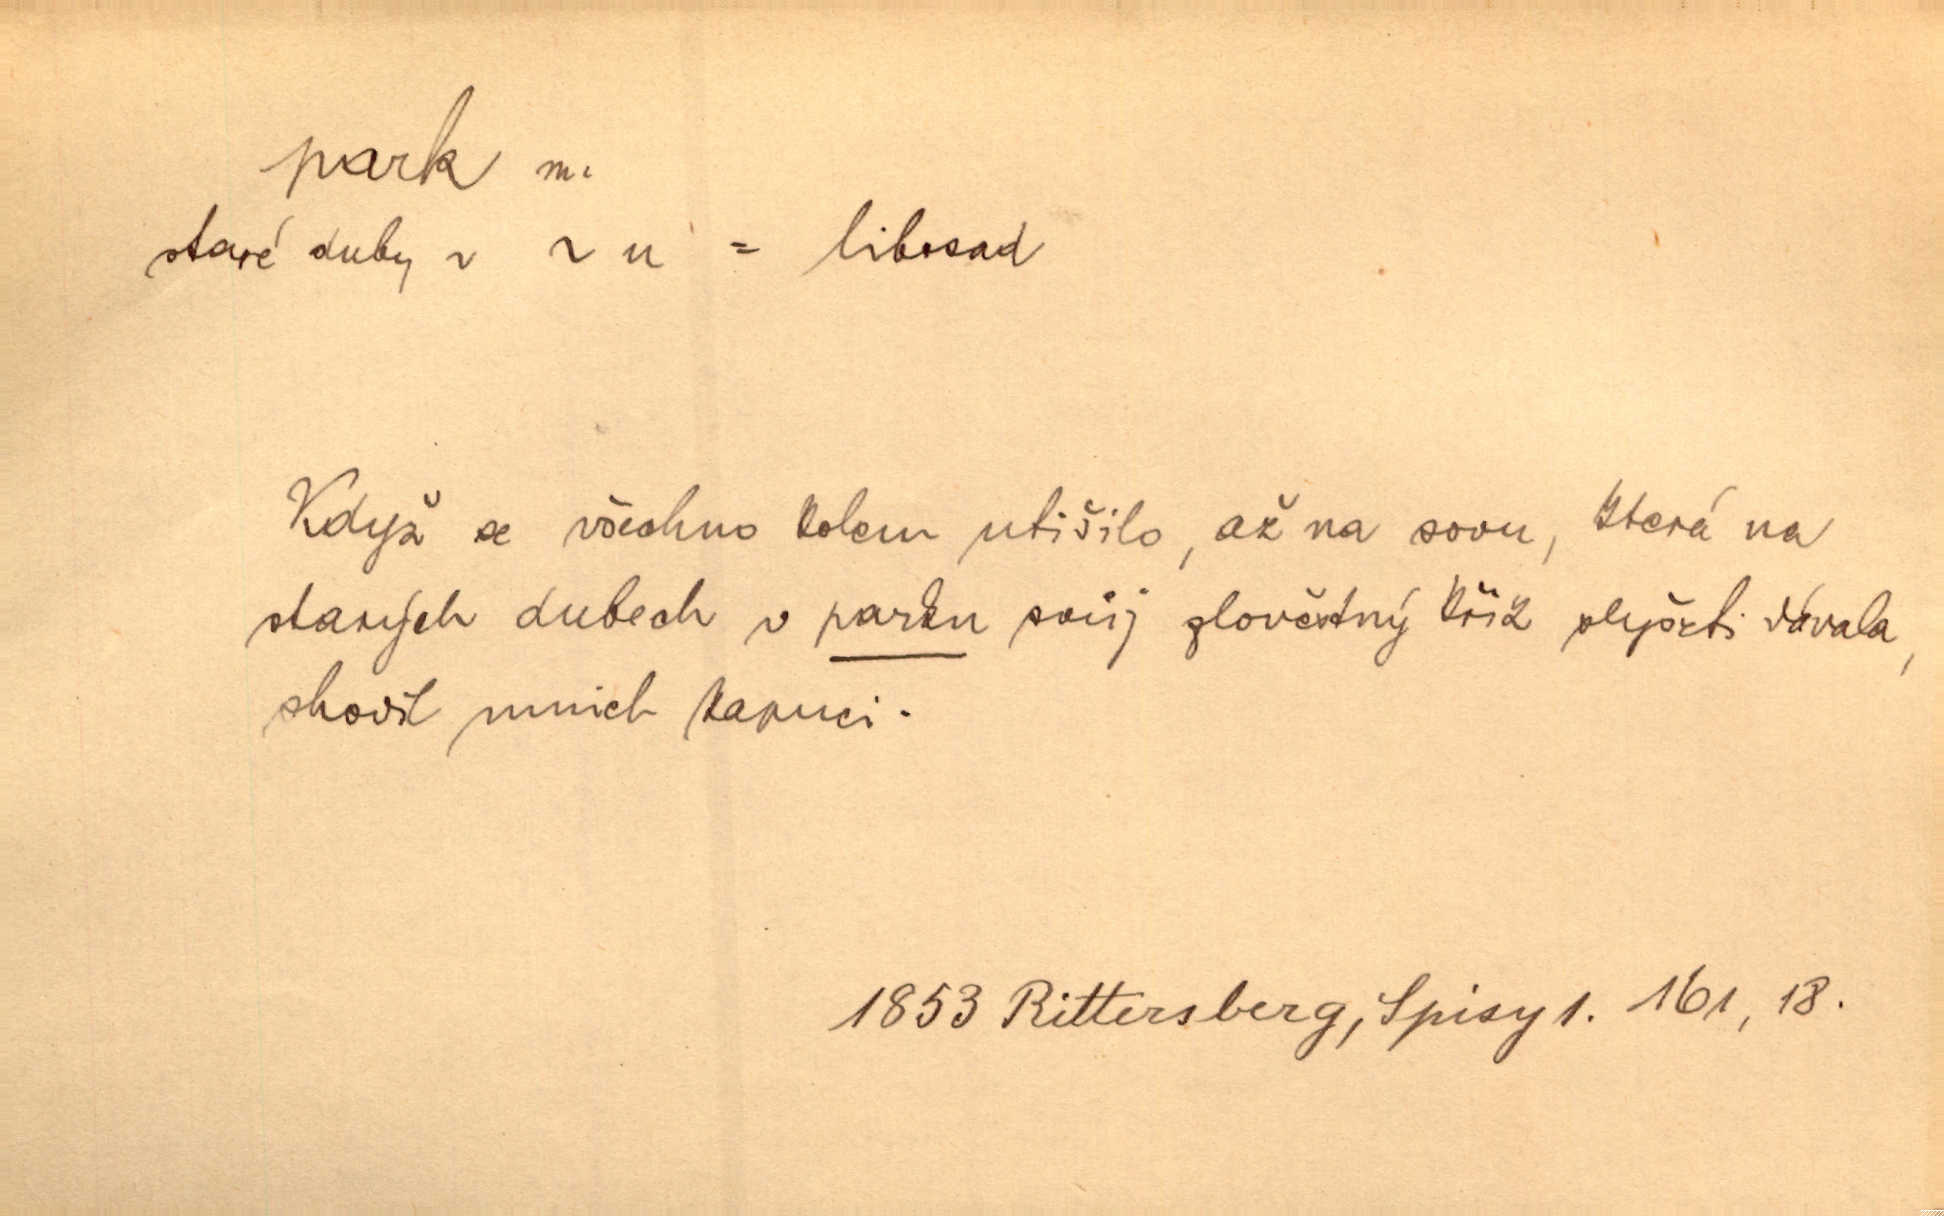 park m.
staré duby v ~ u = libosad
Když se všechno kolem utišilo, až na sovu, která na
starých dubech v parku svůj zlověstný křik slyšeti dávala,
shodil mnich kapuci.
1853 Rittersberg, Spisy 1. 161, 18.